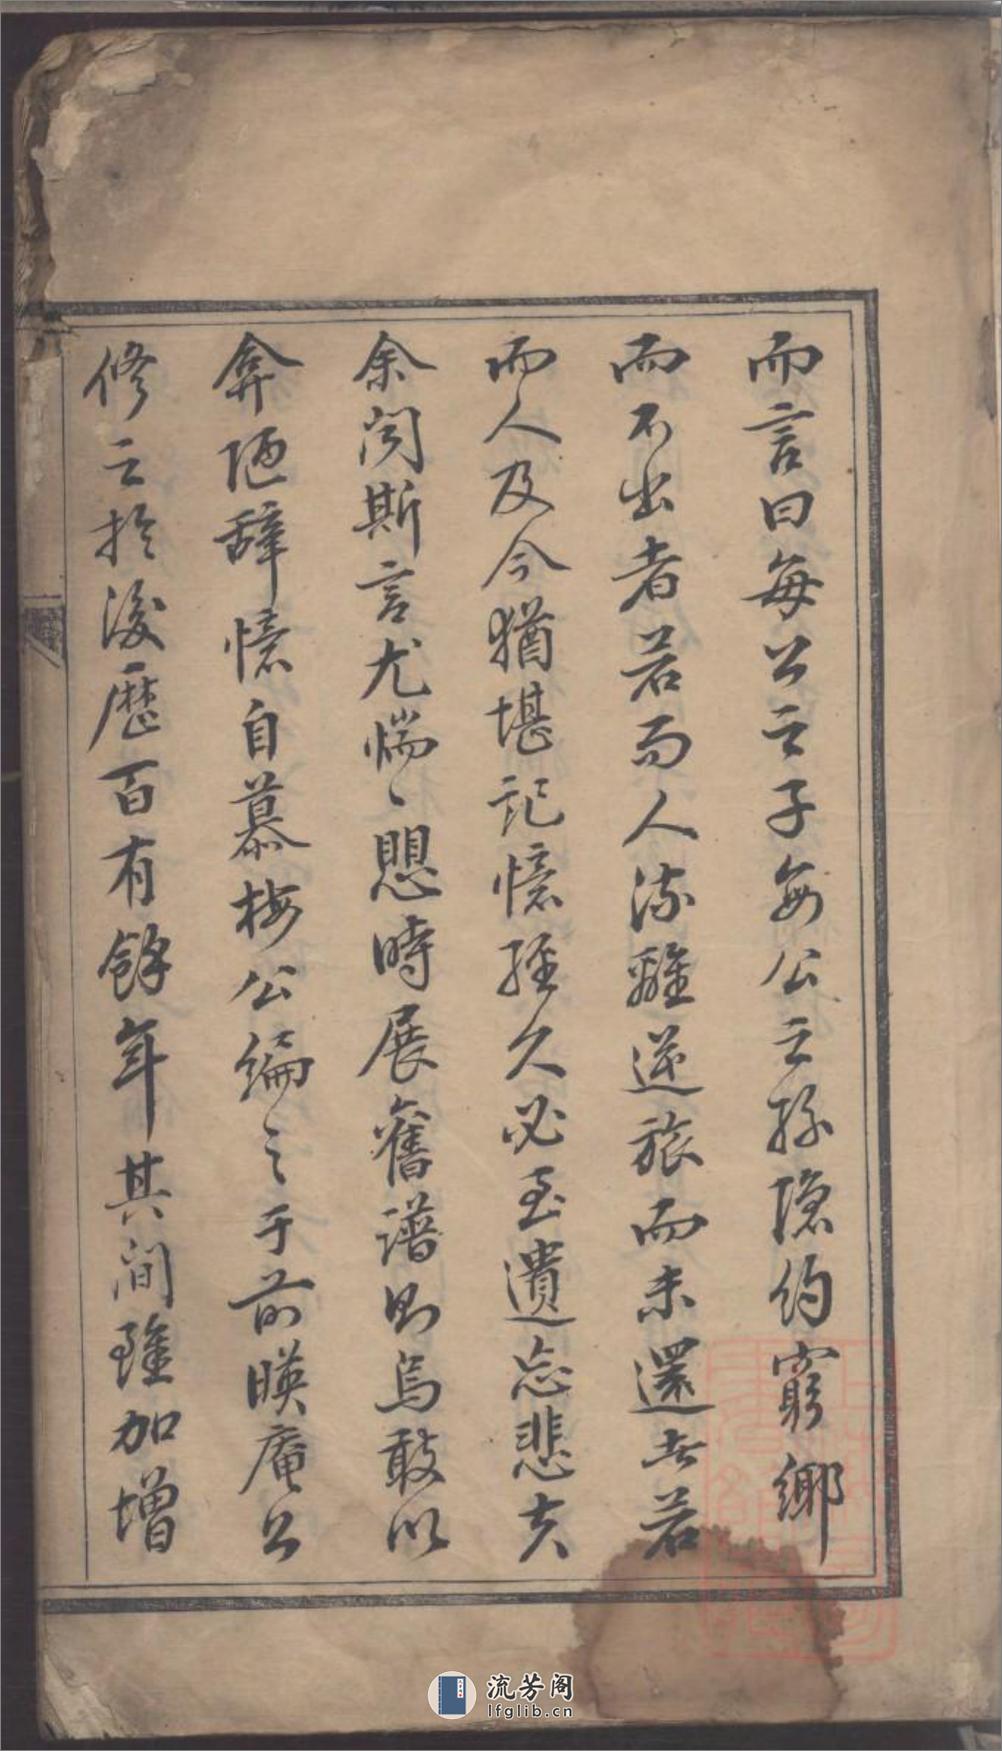 而言曰每公之子每公之孫隱約窮鄉
而不出者若而人流離逆旅而未還者若
而人及今猶堪記憶經久必至遺忘悲夫
余聞斯言尤惴〻恐時展舊譜則烏敢以
弇陋辭憶自慕梅公編之于前暎庵公
修之於後歷百有餘年其間雖加增
流芳阁
lfglib.cn